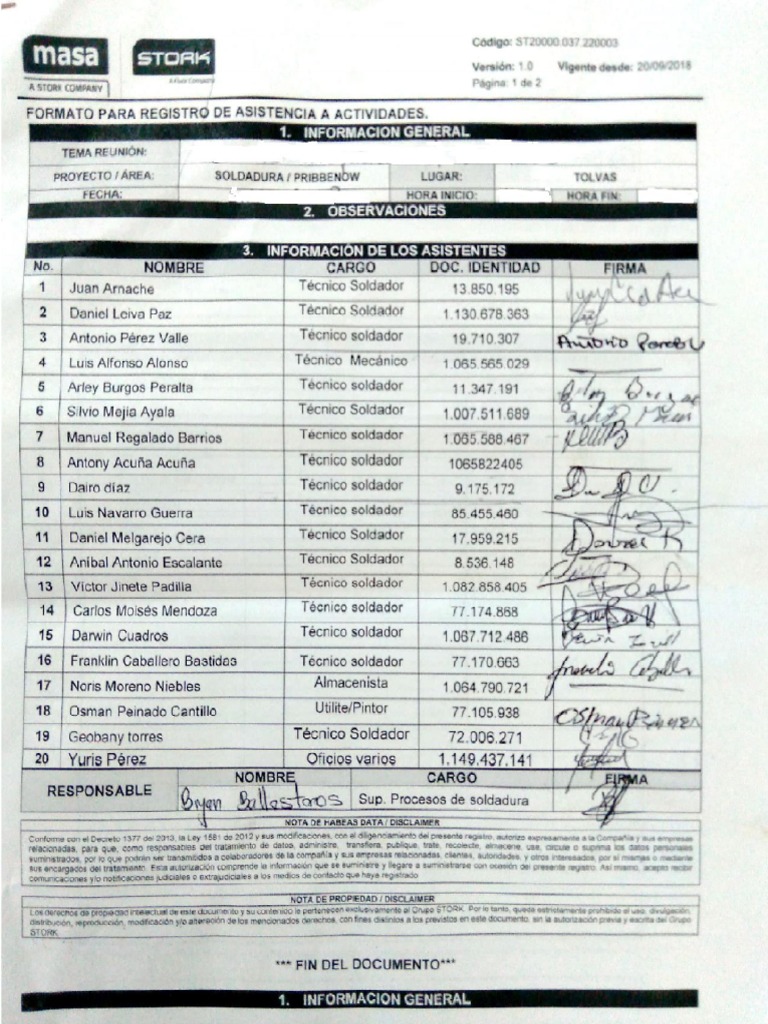 masa
A STORK COMPANY
STORK
A Fluor Company
Código: ST20000.037.220003
Versión: 1.0 Vigente desde: 20/09/2018
Página: 1 de 2
FORMATO PARA REGISTRO DE ASISTENCIA A ACTIVIDADES.
1. INFORMACION GENERAL
TEMA REUNIÓN:
PROYECTO / ÁREA: SOLDADURA / PRIBBENOW LUGAR: TOLVAS
FECHA: HORA INICIO: HORA FIN:
2. OBSERVACIONES
3. INFORMACIÓN DE LOS ASISTENTES
No. NOMBRE CARGO DOC. IDENTIDAD FIRMA
1 Juan Arnache Técnico Soldador 13.850.195
2 Daniel Leiva Paz Técnico Soldador 1.130.678.363
3 Antonio Pérez Valle Técnico soldador 19.710.307 Antonio
4 Luis Alfonso Alonso Técnico Mecánico 1.065.565.029
5 Arley Burgos Peralta Técnico soldador 11.347.191
6 Silvio Mejía Ayala Técnico Soldador 1.007.511.689
7 Manuel Regalado Barrios Técnico Soldador 1.065.588.467
8 Antony Acuña Acuña Técnico soldador 1065822405
9 Dairo díaz Técnico soldador 9.175.172
10 Luis Navarro Guerra Técnico soldador 85.455.460
11 Daniel Melgarejo Cera Técnico soldador 17.959.215
12 Aníbal Antonio Escalante Técnico soldador 8.536.148
13 Víctor Jinete Padilla Técnico soldador 1.082.858.405
14 Carlos Moisés Mendoza Técnico soldador 77.174.868
15 Darwin Cuadros Técnico soldador 1.067.712.486
16 Franklin Caballero Bastidas Técnico soldador 77.170.663
17 Noris Moreno Niebles Almacenista 1.064.790.721
18 Osman Peinado Cantillo Utilite/Pintor 77.105.938
19 Geobany torres Técnico Soldador 72.006.271
20 Yuris Pérez Oficios varios 1,149.437,141
RESPONSABLE NOMBRE CARGO FIRMA
Bryan Ballesteros Sup. Procesos de soldadura
NOTA DE HABEAS DATA / DISCLAIMER
Conforme con el Decreto 1377 del 2013, la Ley 1581 de 2012 y sus modificaciones, con el diligenciamiento del presente registro, autorizo expresamente a la Compañía y sus empresas
relacionadas, para que, como responsables del tratamiento de datos, administre, transfiera, publique, trate, recolecte, almacene, use, circule o suprima los datos personales
suministrados, por lo que podrán ser transmitidos a colaboradores de la compañía y sus empresas relacionadas, clientes, autoridades, y otros interesados, por sí mismas o mediante
sus encargados del tratamiento. Esta autorización comprende la información que se suministre y llegare a suministrarse con ocasión del presente registro. Así mismo, acepto recibir
comunicaciones y/o notificaciones judiciales o extrajudiciales a los medios de contacto que haya registrado
NOTA DE PROPIEDAD / DISCLAIMER
Los derechos de propiedad intelectual de este documento y su contenido le pertenecen exclusivamente al Grupo STORK. Por lo tanto, queda estrictamente prohibido el uso, divulgación,
distribución, reproducción, modificación y/o alteración de los mencionados derechos, con fines distintos a los previstos en este documento, sin la autorización previa y escrita del Grupo
STORK
*** FIN DEL DOCUMENTO***
1. INFORMACION GENERAL